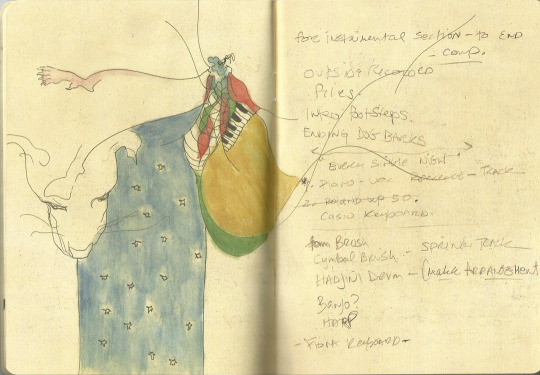 For instrimental section - to END
- comp.
OUTSIDE RECORDED
files.
INTRO footsteps.
ENDING DOG BARKS
EVERY SINGLE NIGHT
PIANO - REFERENCE - TRACK
50.
CASIO KEYBOARD.
Brush
Cymbal Brush - SPRINKLE TRACK
HADJINI Drum - (make ARRANGEMENT
Banjo?
HARP
- KEYBOARD -